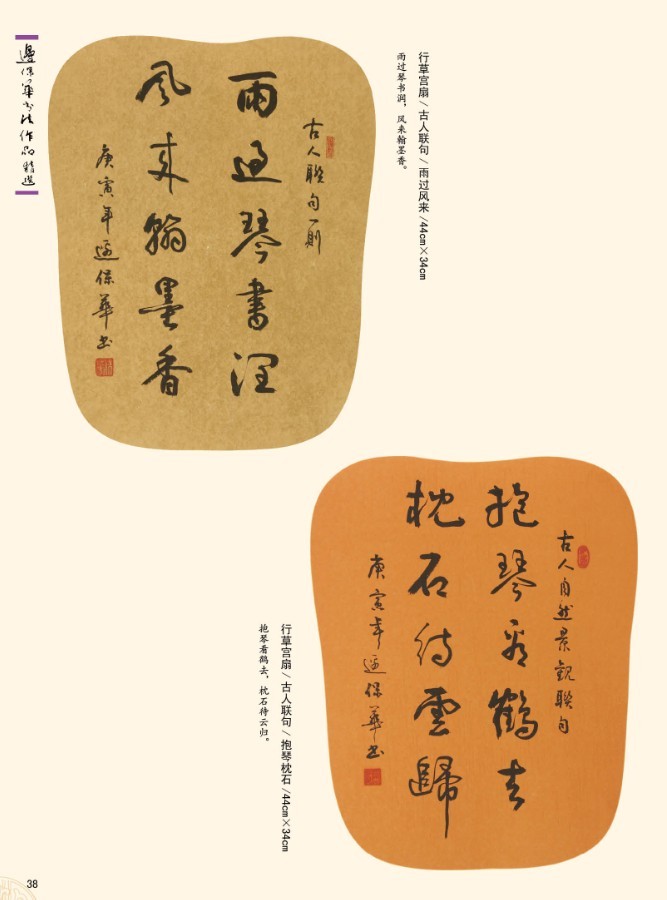 邊保華书法作品精選
行草宫扇/古人联句/雨过风来/44cm×34cm
雨过琴书润，风来翰墨香。
古人联句一则
雨過琴書潤
风来翰墨香
庚寅年邊保華书
古人自然景觀联句
抱琴看鶴去
枕石待雲歸
庚寅年邊保華书
行草宫扇/古人联句/抱琴枕石/44cm×34cm
抱琴看鹤去，枕石待云归。
38